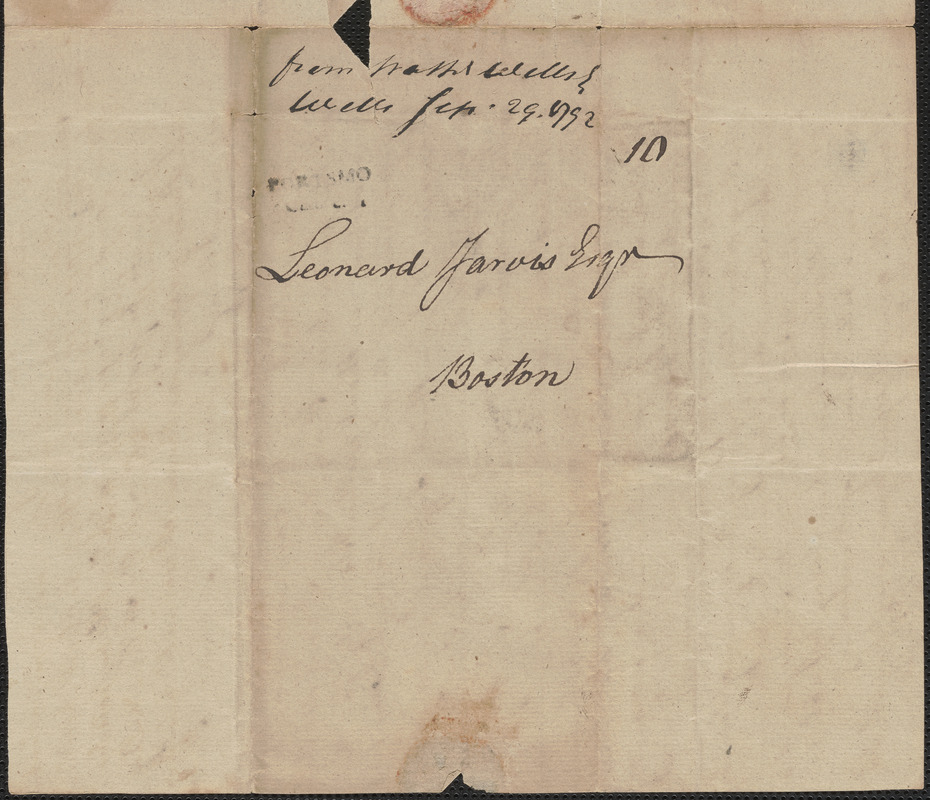 from Nathl Wells
Wells Sep. 29. 1792
10
PORTSMO
Leonard Jarvis Esqr
Boston